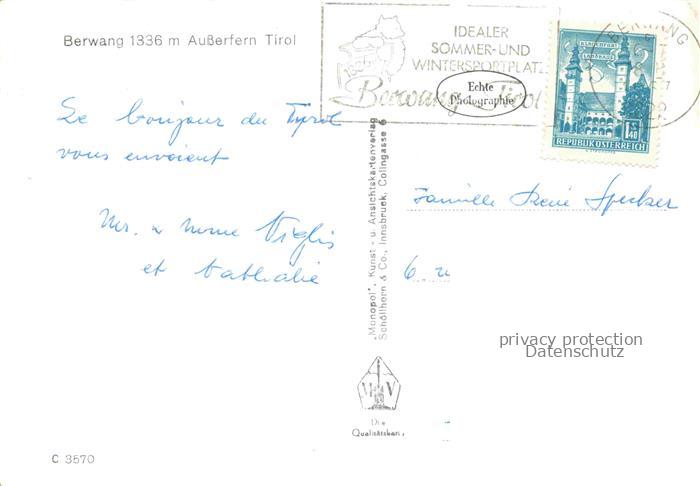 Berwang 1336 m Außerfern Tirol
IDEALER
SOMMER-UND
WINTERSPORTPLATZ
Berwang Tirol
Echte
Photographie
BERWANG
KLAGENFURT
LANDHAUS
1 S 40
REPUBLIK ÖSTERREICH
Le bonjour du Tyrol
vous envoient
Mr. & Mme Viglis
et Nathalie
"Monopol", Kunst - u. Ansichtskartenverlag
Schöllhorn & Co., Innsbruck, Colingasse 6
Famille René Specker
6. u
privacy protection
Datenschutz
M V
Die
Qualitätskar
C 3570